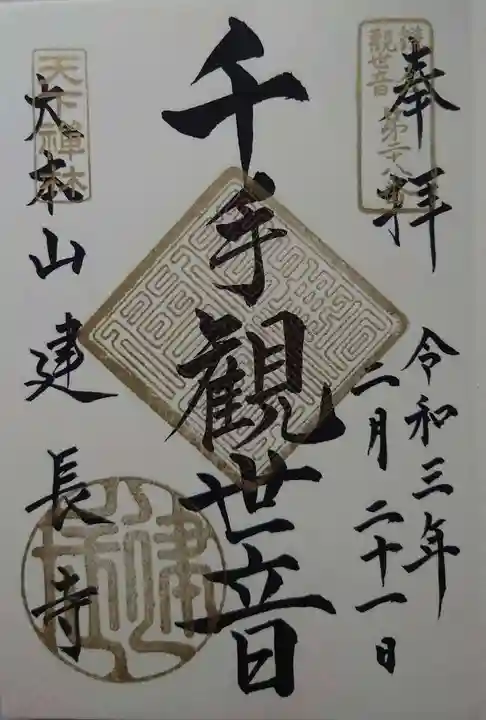 奉拝
令和三年
二月二十一日
千手観世音
大本山建長寺
観世音
第二十八番
天下禅林